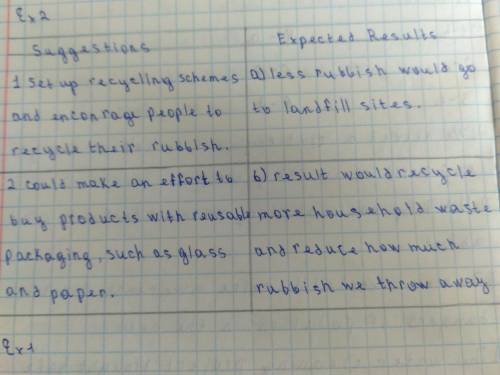 Ex 2
Suggestions Expected Results
1 Set up recycling schemes a) less rubbish would go
and encourage people to to landfill sites.
recycle their rubbish.
2 could make an effort to b) result would recycle
buy products with reusable more household waste
packaging, such as glass and reduce how much
and paper. rubbish we throw away
Ex 1